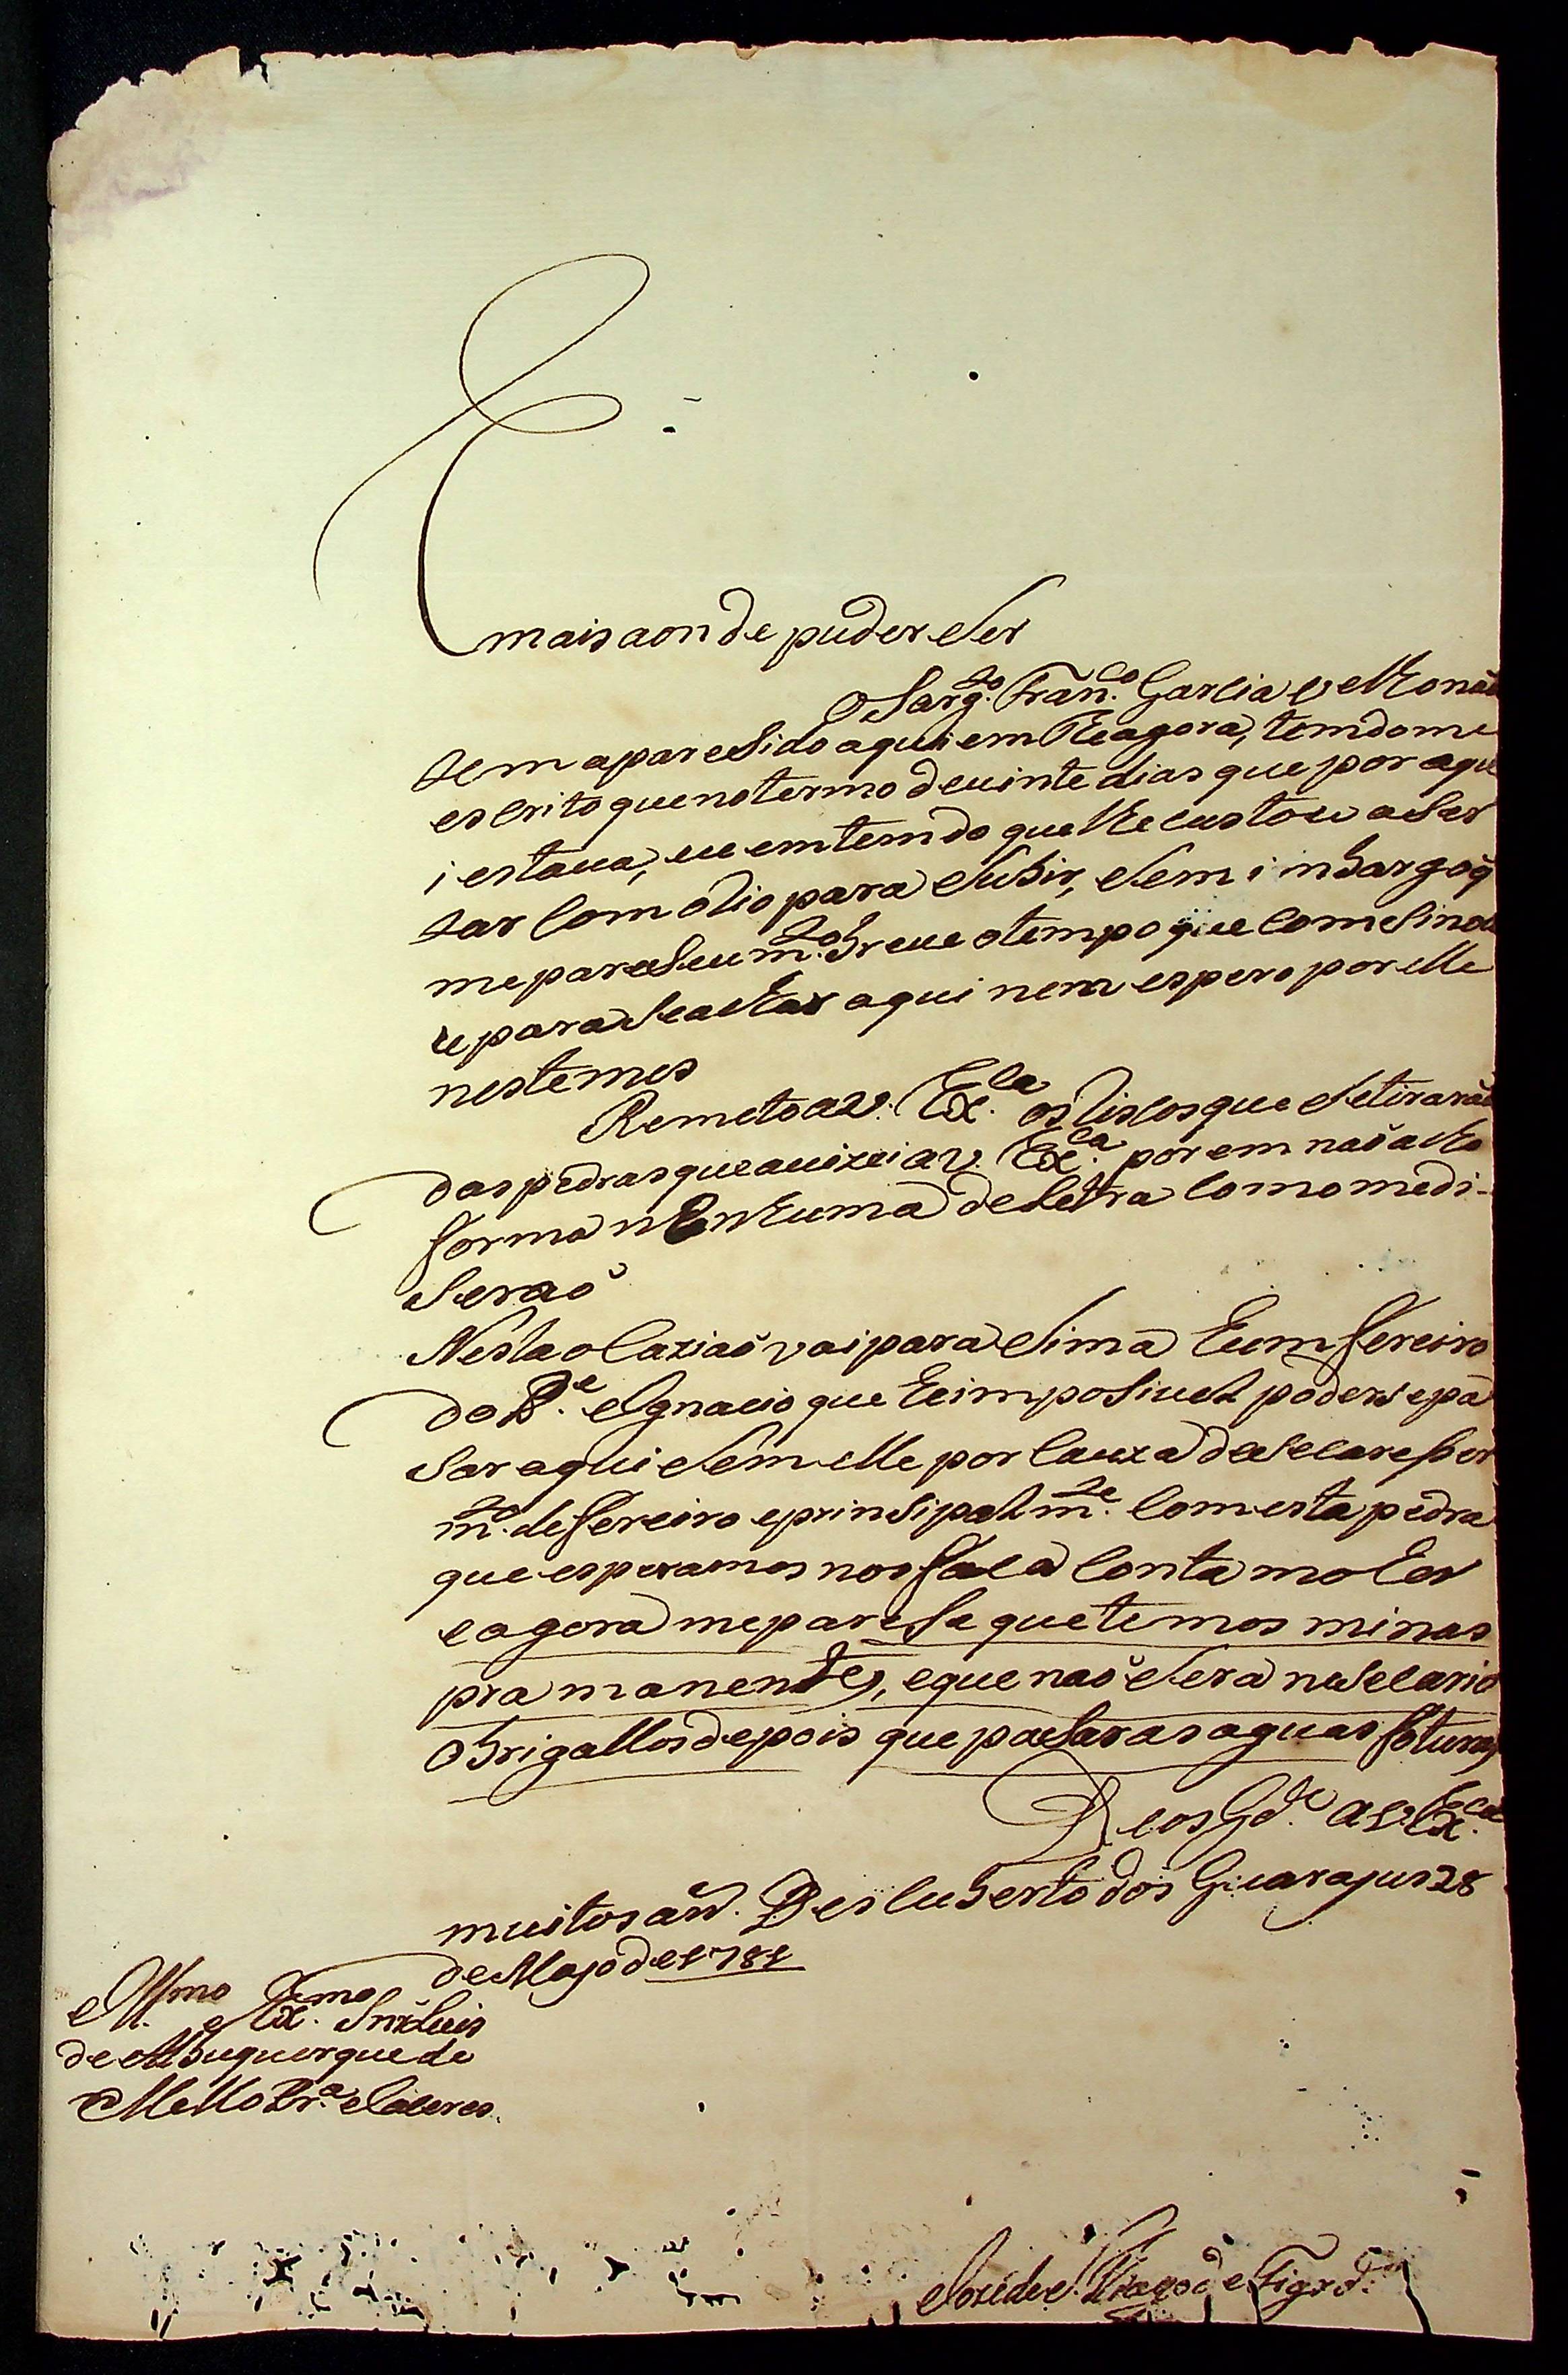 E mais aonde puder Ser
O Sarg.to Fran.co Garcia he Honão
tem apareSido aqui em he agora, temdome
escrito que no termo de uinte dias que por aqu
i estaua, eu emtemdo que he custou a Ser
tar Comodio para Subir, Sem imbargo q
me pareSeu m.to breue o tempo que Comsinou
e para Se achar aqui nem espero por elle
neste mes
Remeto a V. Ex.ca os Liscos que Se tirarão
das pedras que auizei a V. Ex.ca porem não acho
forma nEnhuma de Letra Como me di-
Serão
Nesta oCazião vai para Sima hum fereiro
do P.e Ignacio que he imposiuel poderse pa
Sar aqui Sem elle por Cauza de Se careser
m.to de fereiro e prinsipalm.te Com esta pedra
que esperamos nos faca Conta moher
e agora me pareSe que temos minas
pramanentes, e que não Sera neSecario
Brigallos depois que paSar as aguas foturas
Deos G.de a V. Ex.ca
muitos an.s Descuberto dos Guarajus 28
de Mayo de 1781
Ill.mo e Ex.mo Snr Luis
de Albuquerque de
Mello Pr.a e Caceres
Joze de S. Tiago de Figrd.o